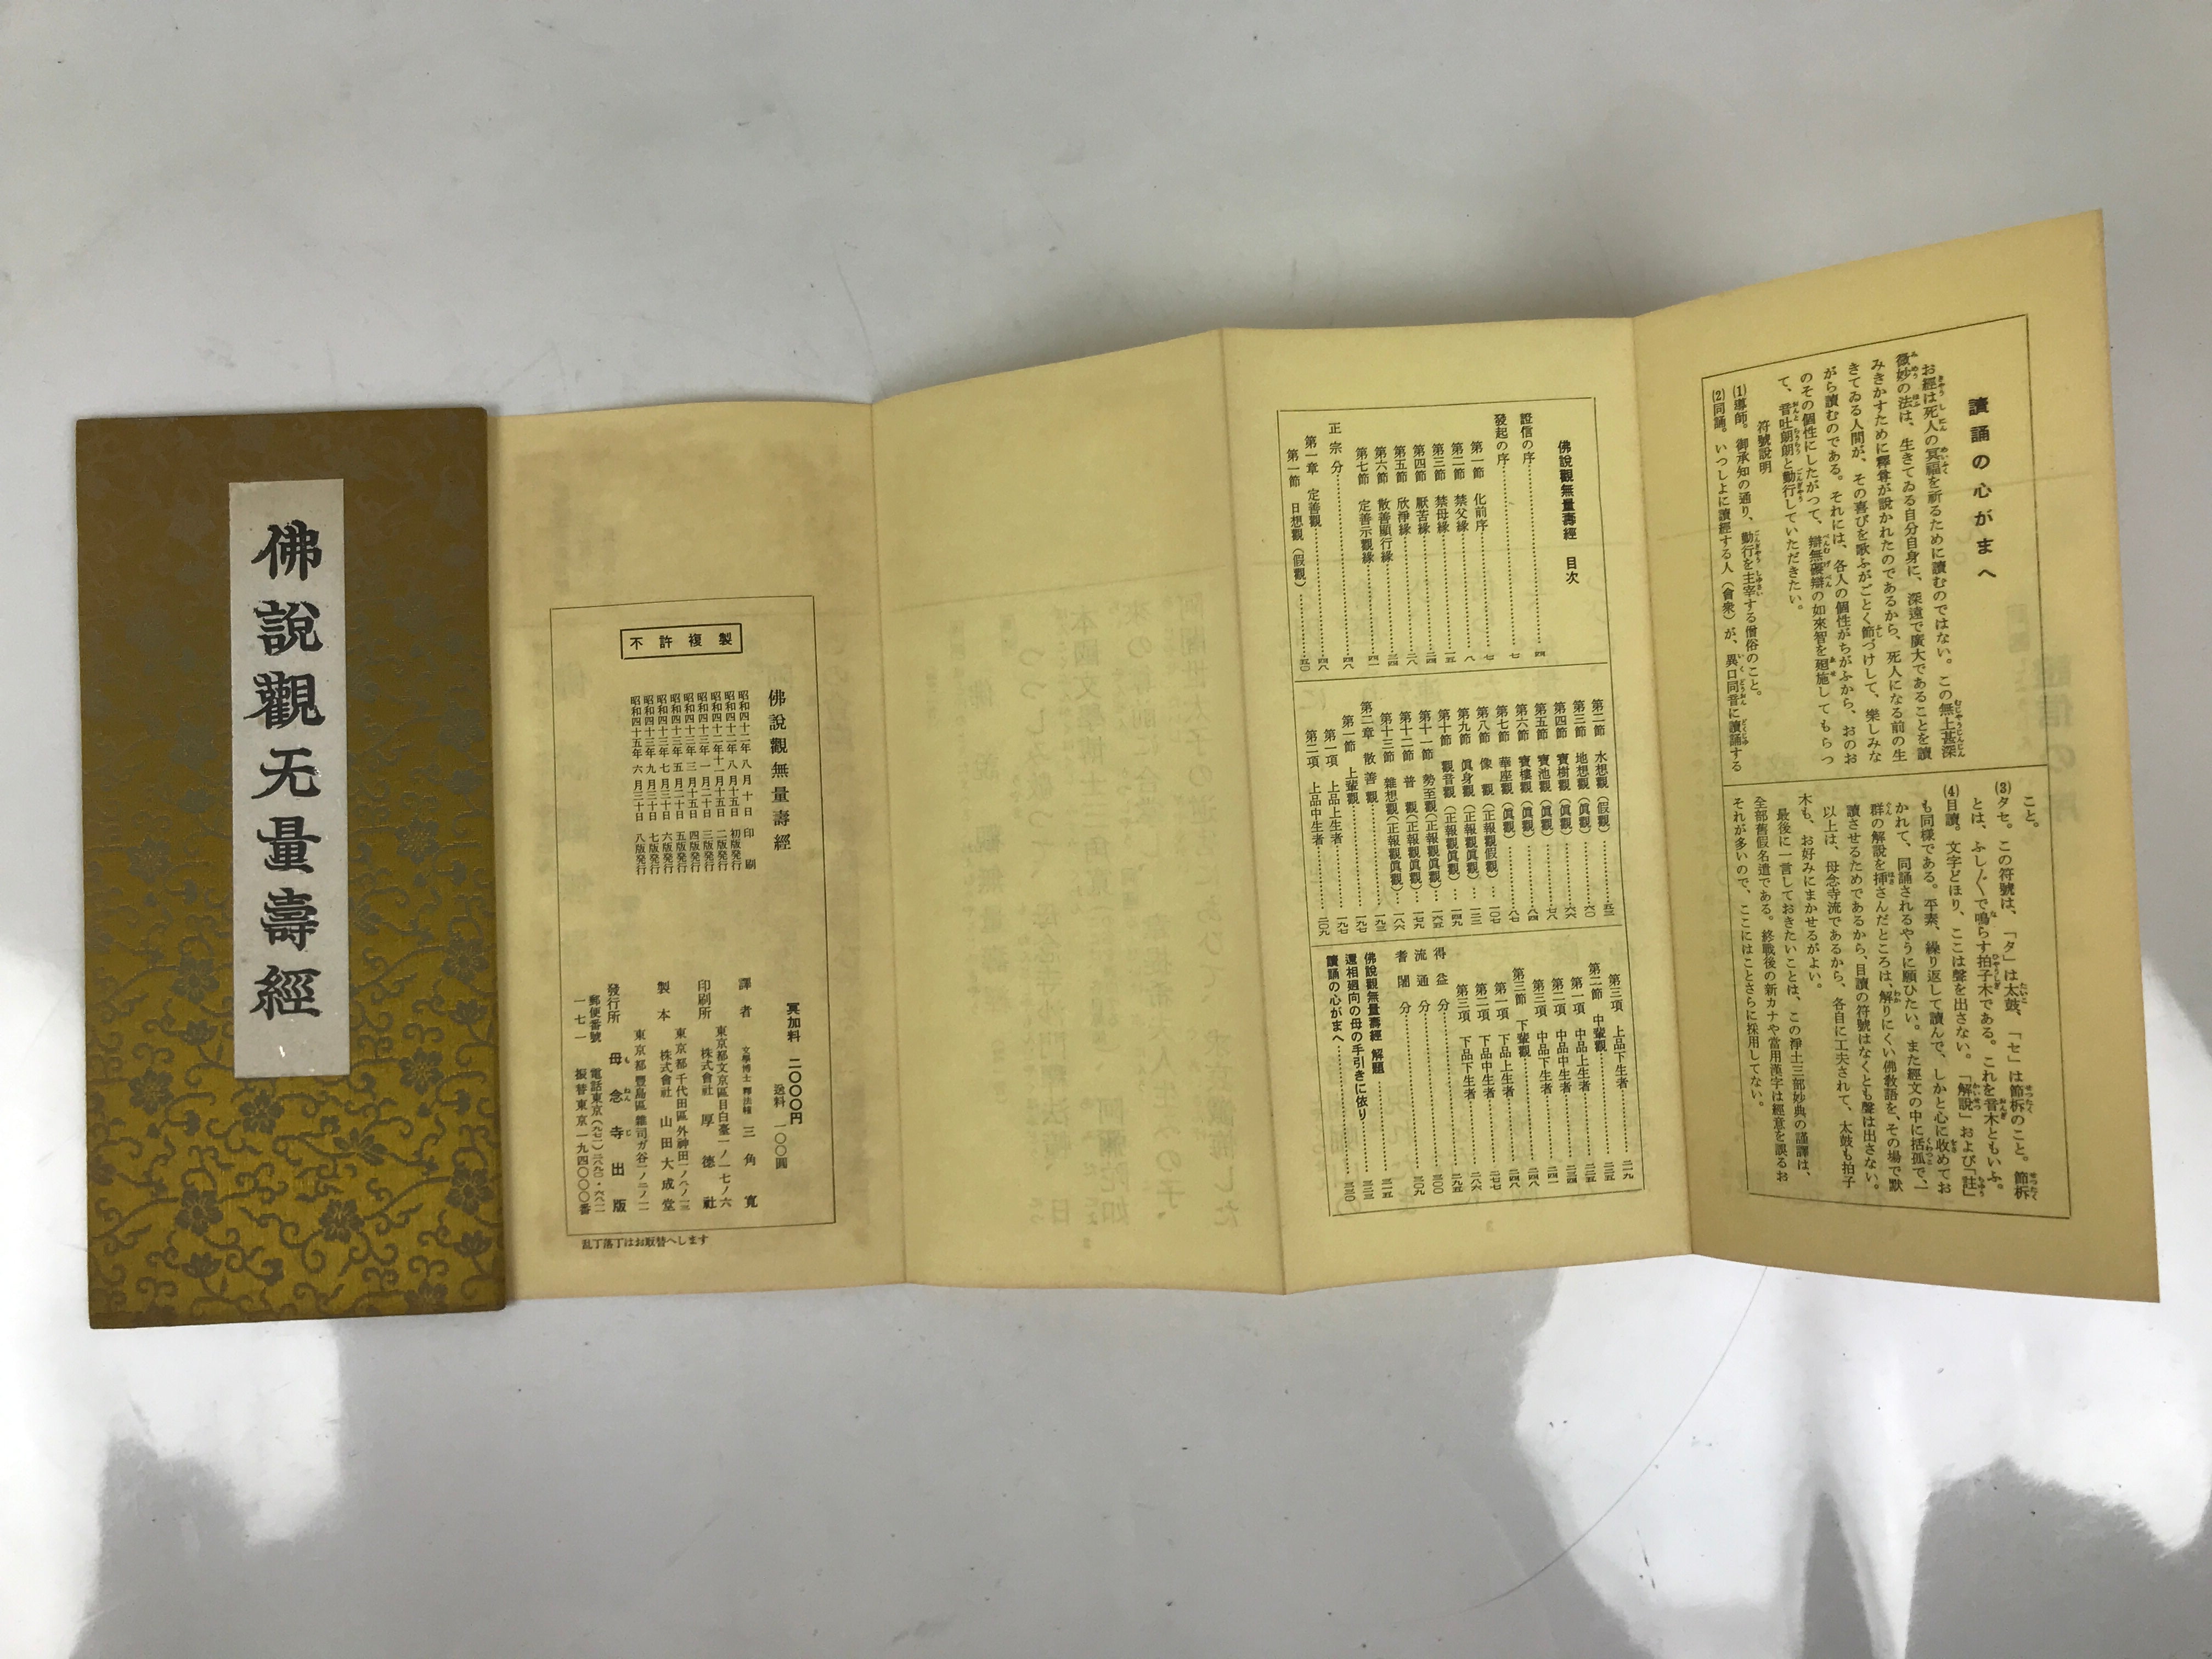 佛說觀无量壽經
讀誦の心がまへ
お經は死人の冥福を祈るために讀むのではない。この無上甚深
微妙の法は、生きてゐる自分自身に、深遠で廣大であることを讀
みきかすために釋尊が說かれたのであるから、死人になる前の生
きてゐる人間が、その喜びを歌ふがごとく節づけして、樂しみな
がら讀むのである。それには、各人の個性がちがふから、おのお
のその個性にしたがつて、辯無礙辯の如來智を廻施してもらつ
て、音吐朗朗と勤行していただきたい。
符號說明
(1)導師。御承知の通り、勤行を主宰する僧俗のこと。
(2)同誦。いつしよに讀經する人（會衆）が、異口同音に讀誦する
こと。
(3)タセ。この符號は、「タ」は太鼓、「セ」は節柝のこと。節柝
とは、ふし〴〵で鳴らす拍子木である。これを音木ともいふ。
(4)目讀。文字どほり、ここは聲を出さない。「解說」および「註」
も同樣である。平素、繰り返して讀んで、しかと心に收めてお
かれて、同誦されるやうに願ひたい。また經文の中に括弧で、一
群の解說を挿さんだところは、解りにくい佛敎語を、その場で默
讀させるためであるから、目讀の符號はなくとも聲は出さない。
以上は、母念寺流であるから、各自に工夫されて、太鼓も拍子
木も、お好みにまかせるがよい。
最後に一言しておきたいことは、この淨土三部妙典の謹譯は、
全部舊假名遣である。終戰後の新カナや當用漢字は經意を誤るお
それが多いので、ここにはことさらに採用してない。
佛說觀無量壽經 目次
證信の序 四
發起の序 七
第一節 化前序 七
第二節 禁父緣 八
第三節 禁母緣 一五
第四節 厭苦緣 二四
第五節 欣淨緣 二八
第六節 散善顯行緣 三四
第七節 定善示觀緣 四一
正宗分 四八
第一章 定善觀 四八
第一節 日想觀（假觀） 五〇
第二節 水想觀（假觀） 五三
第三節 地想觀（眞觀） 六〇
第四節 寶樹觀（眞觀） 六六
第五節 寶池觀（眞觀） 七八
第六節 寶樓觀（眞觀） 八四
第七節 華座觀（眞觀） 八七
第八節 像觀（正報觀假觀） 一〇七
第九節 眞身觀（正報觀眞觀） 一二三
第十節 觀音觀（正報觀眞觀） 一四九
第十一節 勢至觀（正報觀眞觀） 一六五
第十二節 普觀（正報觀眞觀） 一七九
第十三節 雜想觀（正報觀眞觀） 一八六
第二章 散善觀 一九三
第一節 上輩觀 一九七
第一項 上品上生者 一九七
第二項 上品中生者 二〇九
第三項 上品下生者 二一九
第二節 中輩觀 二二五
第一項 中品上生者 二二五
第二項 中品中生者 二三四
第三項 中品下生者 二四一
第三節 下輩觀 二四八
第一項 下品上生者 二四八
第二項 下品中生者 二七七
第三項 下品下生者 二八六
得益分 二九五
流通分 三〇〇
耆闍分 三〇九
佛說觀無量壽經 解題 三一五
還相廻向の母の手引きに依り 三二三
讀誦の心がまへ 三三〇
不許複製
佛說觀無量壽經
昭和四十二年八月十日 印刷
昭和四十二年八月十五日 初版発行
昭和四十二年十一月十五日 二版発行
昭和四十三年一月二十日 三版発行
昭和四十三年三月十五日 四版発行
昭和四十三年五月二十日 五版発行
昭和四十三年七月三十日 六版発行
昭和四十三年九月三十日 七版発行
昭和四十五年六月三十日 八版発行
冥加料 二〇〇〇円
送料 一〇〇圓
譯者 文學博士 釋法幢 三角寛
東京都文京區目白臺一ノ一七ノ六
印刷所 株式會社 厚德社
東京都千代田區外神田一ノ八ノ一三
製本 株式會社 山田大成堂
東京都豐島區雜司ガ谷一ノ二ノ一二
發行所 母念寺出版
郵便番號 電話東京(九七一)二八九〇・六八二一
一七一 振替東京一九四〇〇〇番
乱丁落丁はお取替へします